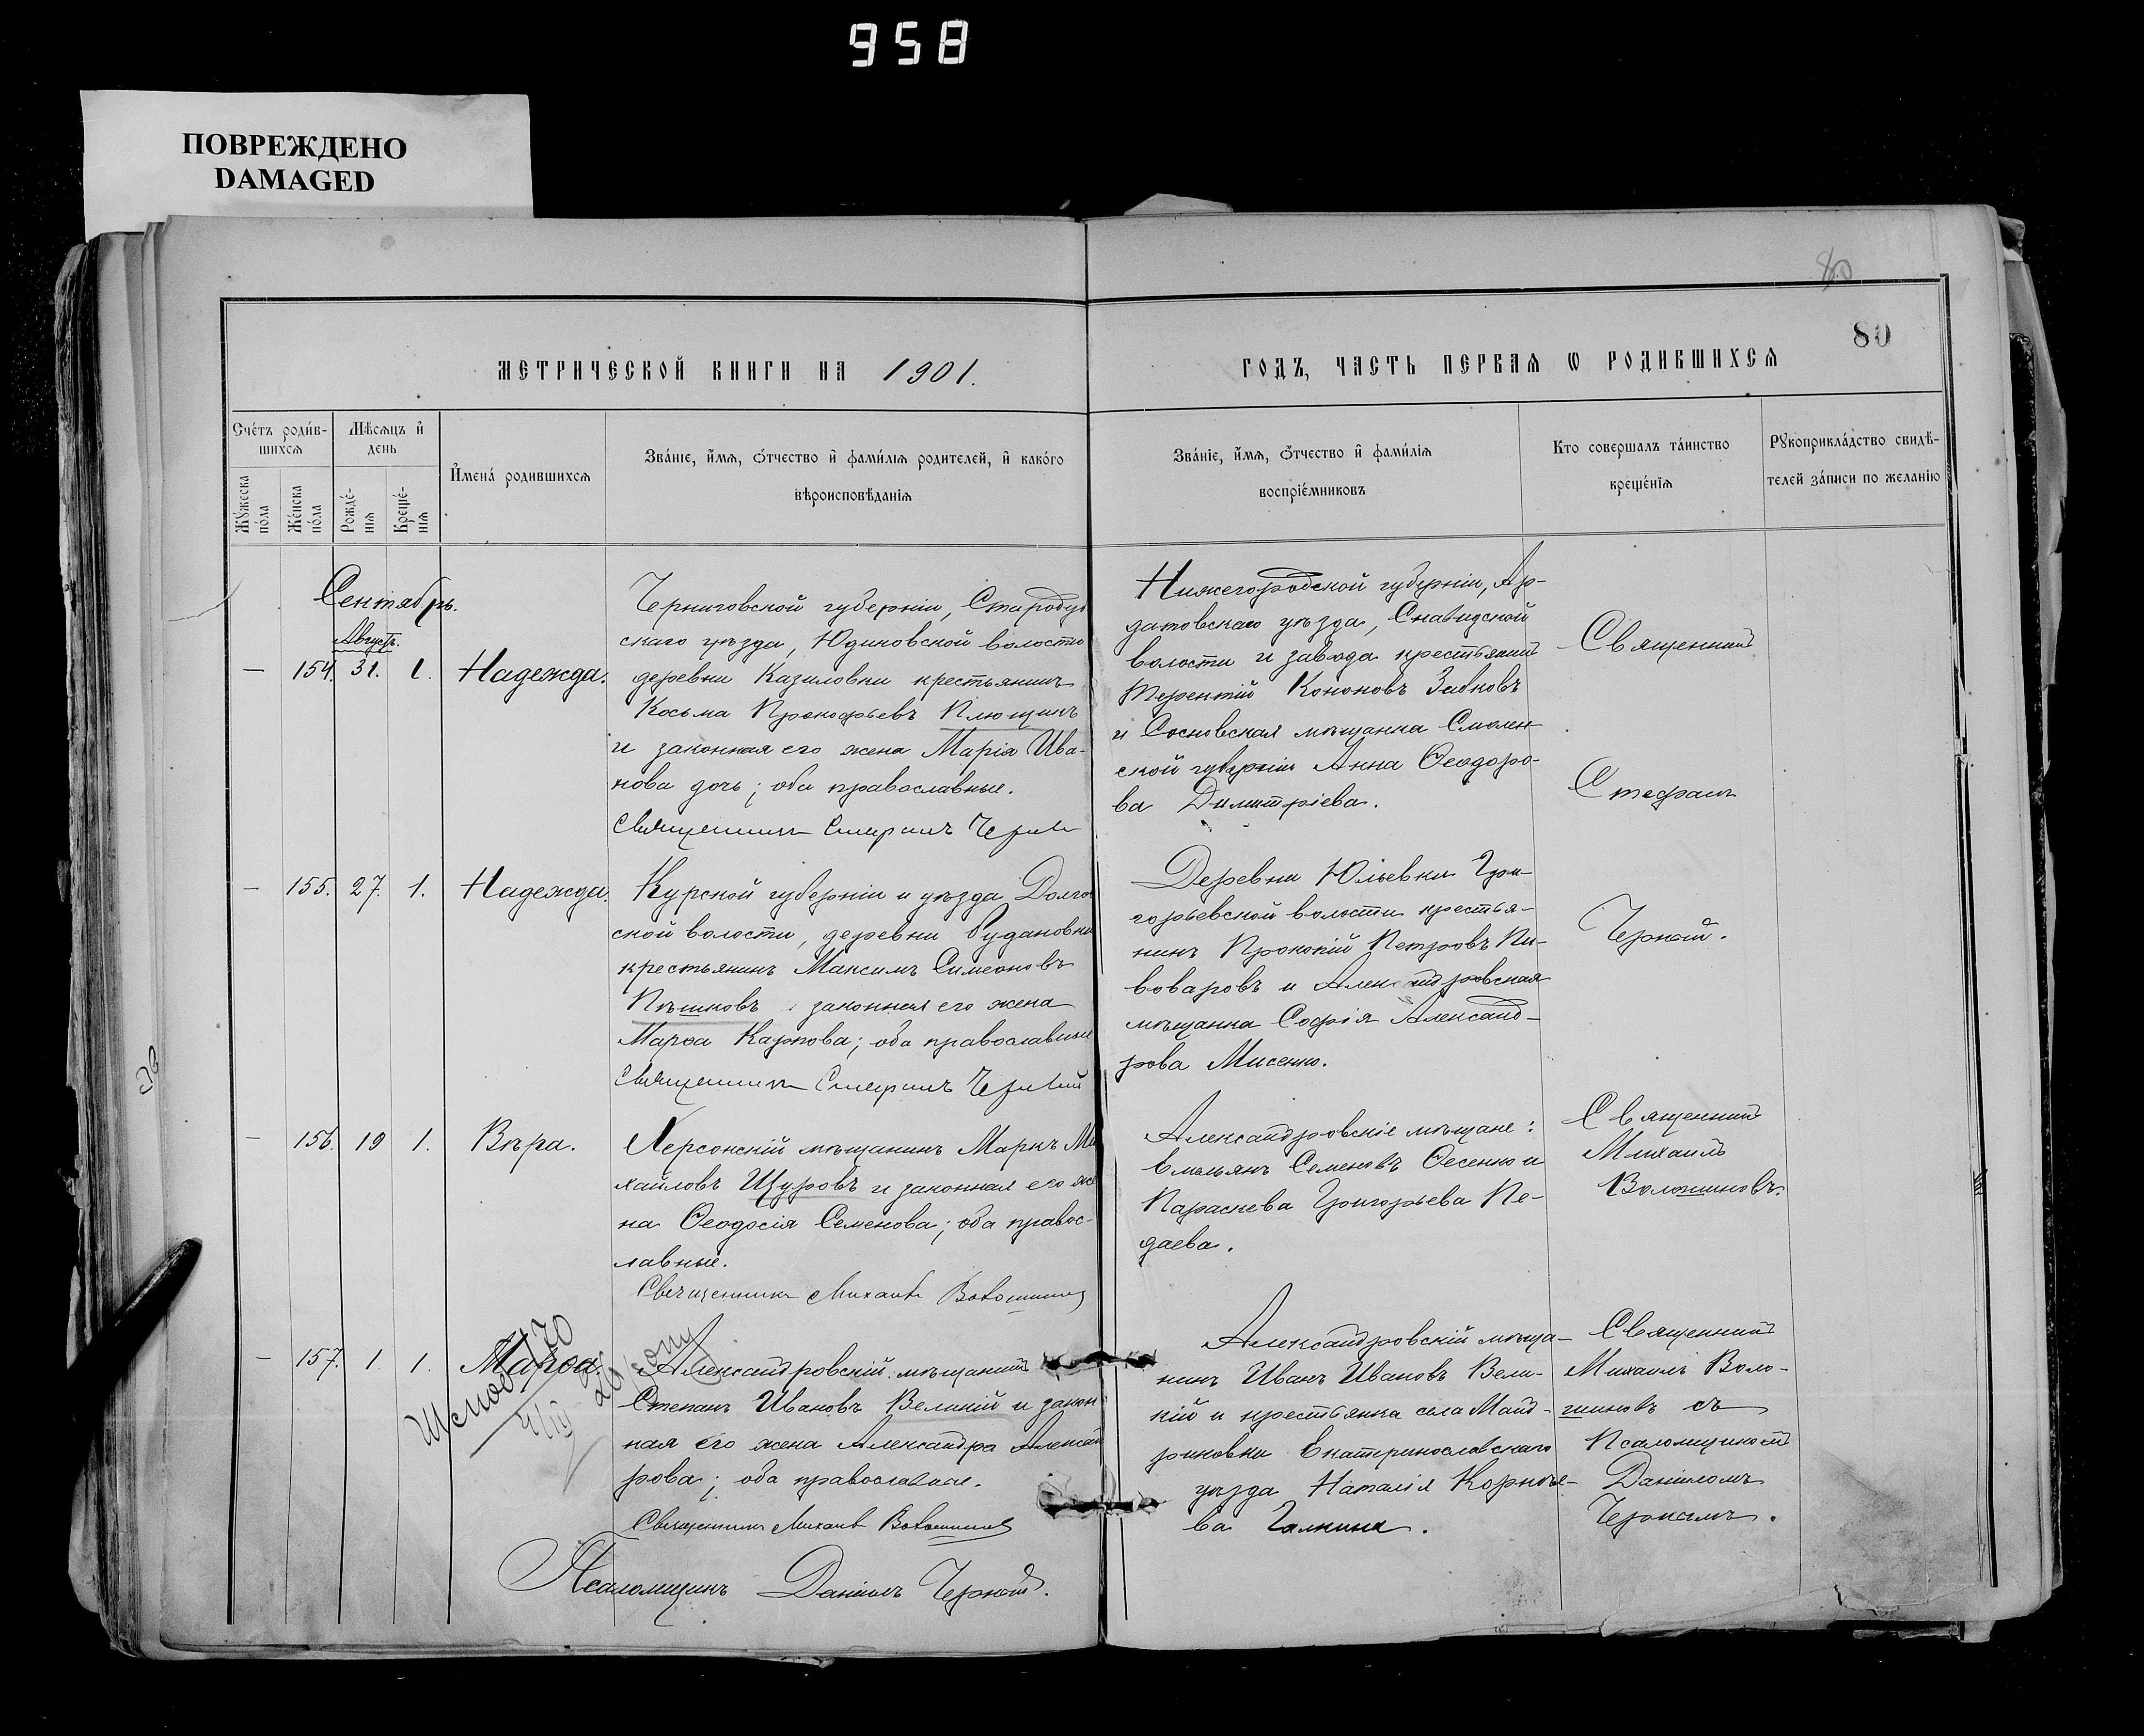 958
ПОВРЕЖДЕНО
DAMAGED
80
80
МЕТРИЧЕСКОЙ КНИГИ НА 1901.
ГОДЪ, ЧАСТЬ ПЕРВАЯ Ѡ РОДИВШИХСЯ
Счетъ родив-
шихся
Мѣсяцъ и
день
Мужеска
пола
Женска
пола
Рожде-
нія
Креще-
нія
Имена родившихся
Званіе, имя, отчество и фамилія родителей, и какого
вѣроисповѣданія
Званіе, имя, отчество и фамилія
воспріемниковъ
Кто совершалъ таинство
крещенія
Рукоприкладство свидѣ-
телей записи по желанію
Сентябрь.
Августъ.
— 154. 31. 1. Надежда.
Черниговской губерніи, Стародуб
скаго уѣзда, Юдиновской волости
деревни Казиловки крестьянинъ
Косьма Прокофьевъ Плющинъ
и законная его жена Марія Ива-
нова дочь; оба православные.
Священникъ Стефанъ Черный
Нижегородской губерніи, Ар-
датовскаго уѣзда,
волости и завода крестьянинъ
Терентій Кононовъ
и Сосновская мѣщанка Смолен-
ской губерніи Анна Ѳеодоро-
ва Димитріева.
Священникъ
Стефанъ
Черный.
— 155. 27. 1. Надежда.
Курской губерніи и уѣзда Долго
ской волости, деревни Рудановки
крестьянинъ Максимъ Симеоновъ
Пѣшковъ и законная его жена
Марѳа Карпова; оба православные
Священникъ Стефанъ Черный
Деревни Юльевки Гри-
горьевской волости крестья-
нинъ Прокопій Петровъ Пи-
воваровъ и Александровская
мѣщанка Софія Александ-
рова Мисенко.
— 156. 19 1. Вѣра.
Херсонскій мѣщанинъ Маркъ Ми
хайловъ Щуровъ и законная его же
на Ѳеодосія Семенова; оба правос-
лавные.
Священникъ Михаилъ Волошиновъ
Александровскіе мѣщане:
Емельянъ Семеновъ Ѳесенко и
Параскева Григорьева Пе-
даева.
Священникъ
Михаилъ
Волошиновъ.
— 157. 1. 1. Марѳа.
Александровскій мѣщанинъ
Степанъ Ивановъ Великій и закон
ная его жена Александра Александ
рова; оба православные.
Священникъ Михаилъ Волошиновъ
Псаломщикъ Даніилъ Черный.
Александровскій мѣща-
нинъ Иванъ Ивановъ Вели-
кій и крестьянка села
Екатеринославскаго
уѣзда Наталія Корнѣе-
ва Галкина.
Священникъ
Михаилъ Воло-
шиновъ съ
Псаломщикомъ
Даніиломъ
Чернымъ.